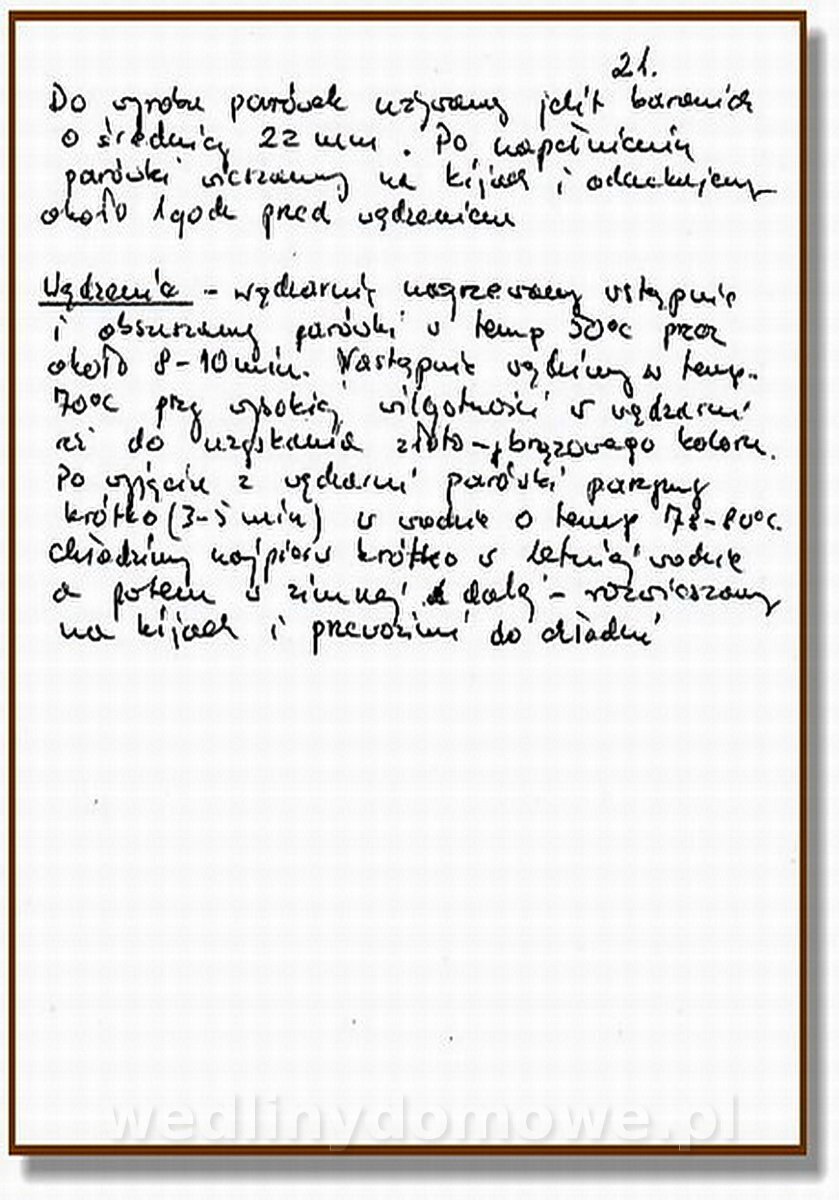 21.
Do wyrobu parówek używamy jelit baranich
o średnicy 22 mm. Po napełnieniu
parówki wieszamy na kijach i odczekujemy
około 1 godz przed wędzeniem
Wędzenie - wędzarnię nagrzewamy wstępnie
i obsuszamy parówki w temp 50°C przez
około 8-10 min. Następnie wędzimy w temp.
70°C przy wysokiej wilgotności w wędzarni
aż do uzyskania złoto-brązowego koloru.
Po wyjęciu z wędzarni parówki parzymy
krótko (3-5 min) w wodzie o temp 78-80°C.
Chłodzimy najpierw krótko w letniej wodzie
a potem w zimnej dalej - rozwieszamy
na kijach i przewozimy do chłodni
wedlinydomowe.pl